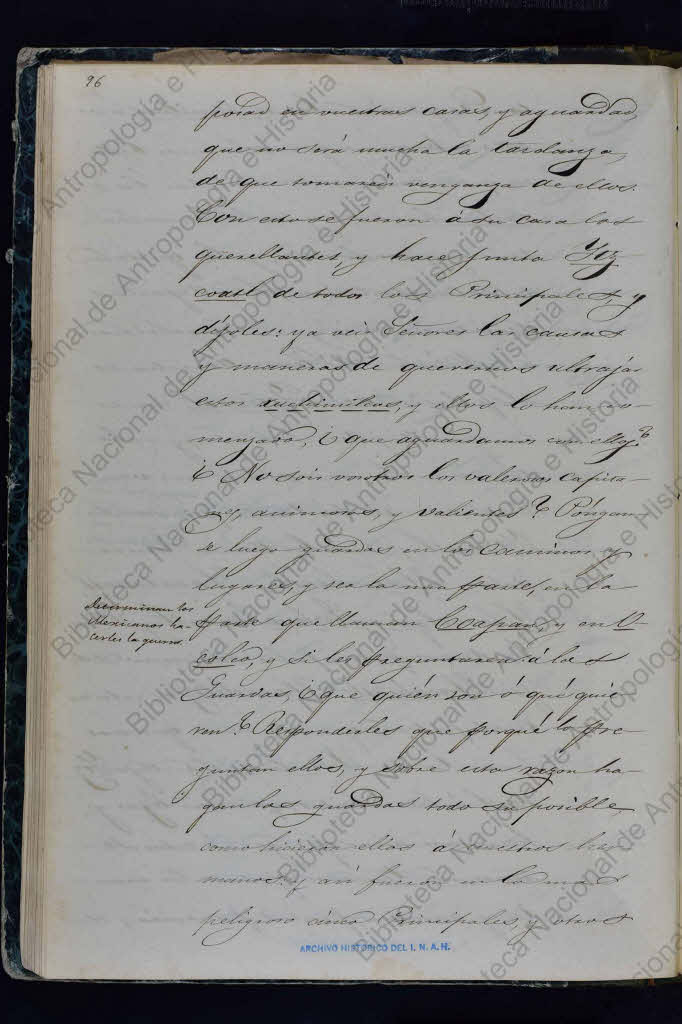 96
posad en vuestras casas, y aguardad,
que no será mucha la tardanza,
de que tomaréis venganza de ellos.
Con esto se fueron á su casa los
querellantes, y hace junta Itz
coatl de todos los Principales, y
díjoles: ya veis Señores las causas
y maneras de querernos ultrajar
estos xuchimilcas, y ellos lo han co-
menzado, ¿ que aguardamos con ellos?
¿ No sois vosotros los valerosos capita-
nes, animosos, y valientes? Póngan
se luego guardas en los caminos, y
lugares, y sea la una parte, en la
parte que llaman Coapan, y en
y si les preguntaren á los
Guardas, ¿ que quién son ó qué quie
ren? Responderles que porqué lo pre-
guntan ellos, y sobre esta razon ha-
gan las guardas todo su posible,
como hicieron ellos á nuestros her
manos: y así fueron en lo mas
peligroso cinco Principales, y otros
Determinan los
Mexicanos ha-
cerles la guerra.
ARCHIVO HISTÓRICO DEL I. N. A. H.
Biblioteca Nacional de Antropología e Historia